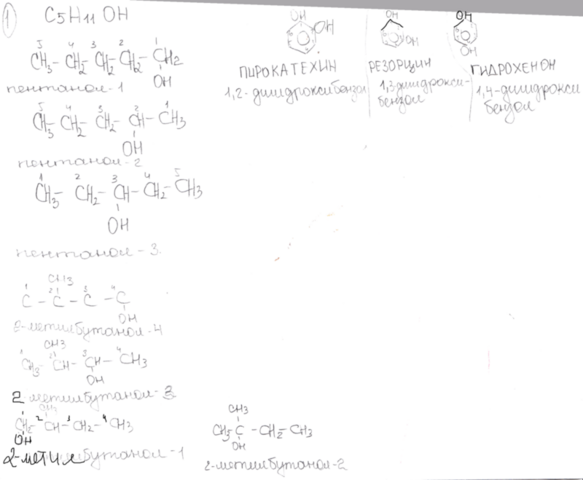 1 C5H11OH
5 4 3 2 1
CH3-CH2-CH2-CH2-CH2
OH
пентанол-1
5 4 3 2 1
CH3-CH2-CH2-CH-CH3
OH
пентанол-2
1 2 3 4 5
CH3-CH2-CH-CH2-CH3
OH
пентанол-3
CH3
1 2 3 4
C-C-C-C
OH
2-метилбутанол-4
CH3
1 2 3 4
CH3-CH-CH-CH3
OH
2-метилбутанол-3
CH3
1 2 3 4
CH2-CH-CH2-CH3
OH
2-метилбутанол-1
CH3
CH3-C-CH2-CH3
OH
2-метилбутанол-2
OH
OH
ПИРОКАТЕХИН
1,2-дигидроксибензол
OH
OH
РЕЗОРЦИН
1,3-дигидрокси-
бензол
OH
OH
ГИДРОХЕНОН
1,4-дигидрокси
бензол